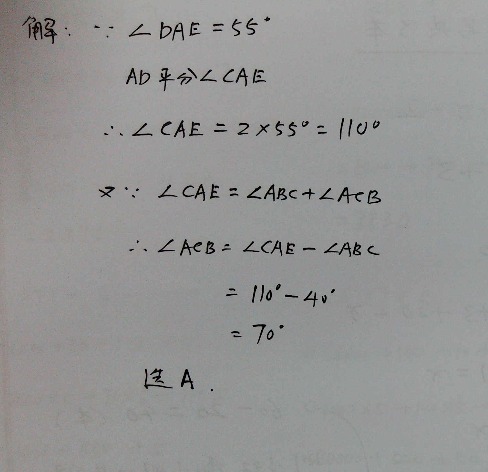 解: ∵ ∠DAE = 55°
AD平分∠CAE
∴ ∠CAE = 2×55° = 110°
又∵ ∠CAE = ∠ABC + ∠ACB
∴ ∠ACB = ∠CAE - ∠ABC
= 110° - 40°
= 70°
选A.